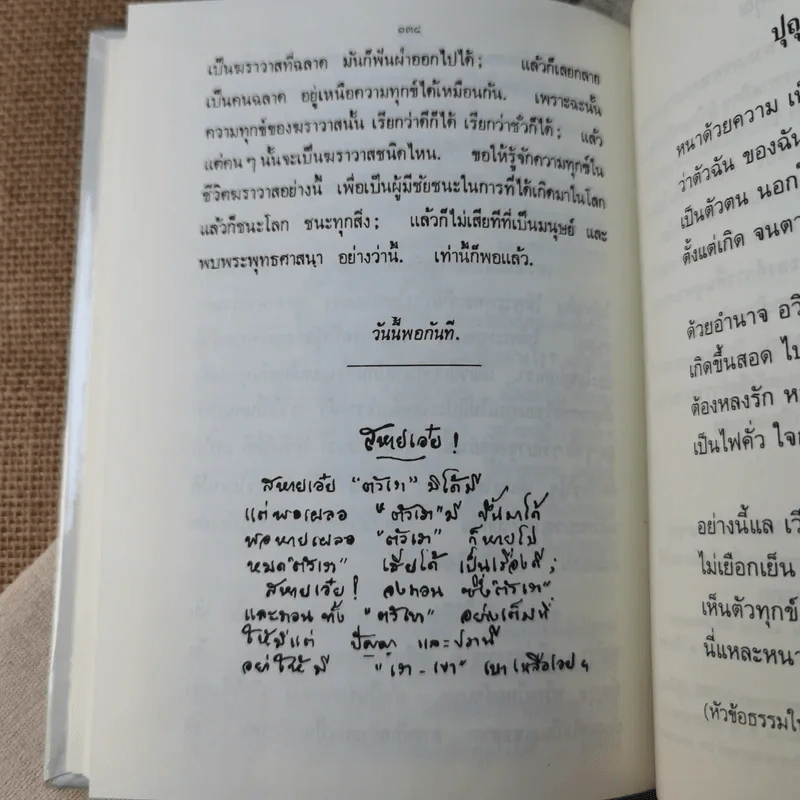 ๑๓๘
เป็นฆราวาสที่ฉลาด มันก็พ้นผ่าออกไปได้; แล้วก็เลยกลาย
เป็นคนฉลาด อยู่เหนือความทุกข์ได้เหมือนกัน. เพราะฉะนั้น
ความทุกข์ของฆราวาสนั้น เรียกว่าดีก็ได้ เรียกว่าชั่วก็ได้; แล้ว
แต่คนๆ นั้นจะเป็นฆราวาสชนิดไหน. ขอให้รู้จักความทุกข์ใน
ชีวิตฆราวาสอย่างนี้ เพื่อเป็นผู้มีชัยชนะในการที่ได้เกิดมาในโลก
แล้วก็ชนะโลก ชนะทุกสิ่ง; แล้วก็ไม่เสียทีที่เป็นมนุษย์ และ
พบพระพุทธศาสนา อย่างว่านี้. เท่านี้ก็พอแล้ว.
วันนี้พอกันที.
สหายเอ๋ย!
สหายเอ๋ย "ตัวเรา" มิได้มี
แต่พอเผลอ "ตัวเรา" มี ขึ้นมาได้
พอหายเผลอ "ตัวเรา" ก็หายไป
หมด "ตัวเรา" เสียได้ เป็นเรื่องดี;
สหายเอ๋ย! จงถอน ซึ่ง "ตัวเรา"
และถอนทั้ง "ตัวเขา" อย่างเต็มที่
ให้มีแต่ ปัญญา และปรานี
อย่าให้มี "เรา-เขา" เบาเหลือเอยฯ
หนาด้วยความ
ว่าตัวฉัน ของฉัน
เป็นตัวตน
ตั้งแต่เกิด
ด้วยอำนาจ
เกิดขึ้นสอด
ต้องหลงรัก
เป็นไฟคั่ว
อย่างนี้แล
ไม่เยือกเย็น
เห็นตัวทุกข์
นี่แหละหนา
(หัวข้อธรรม